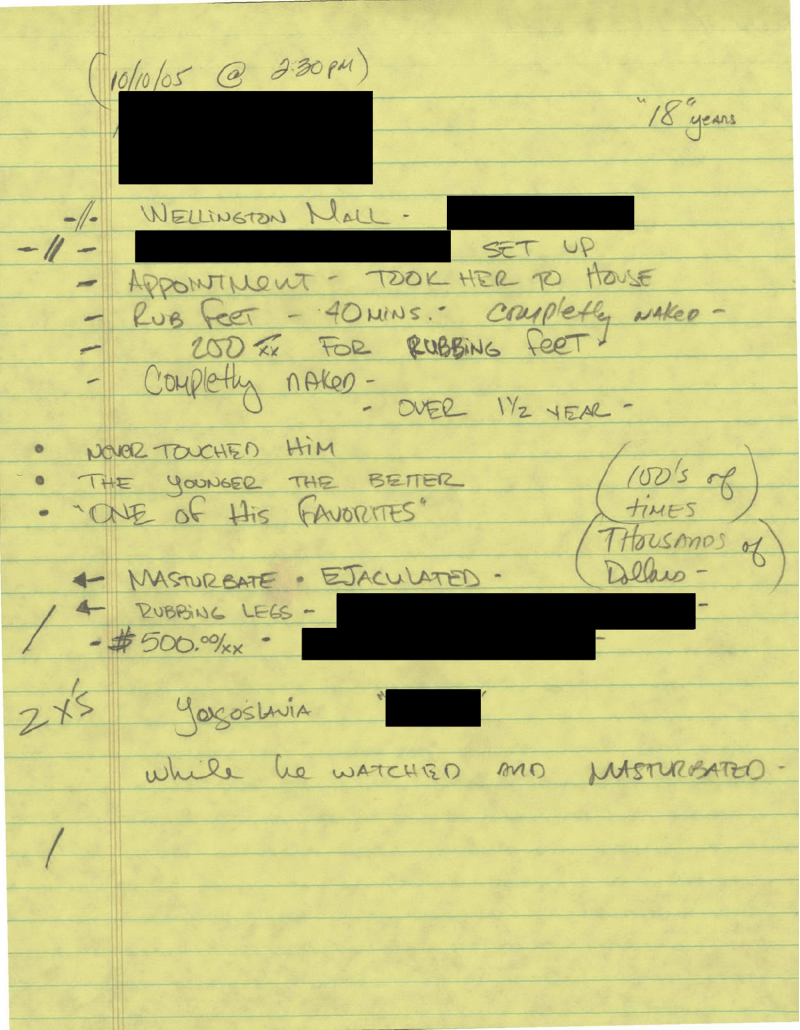 (10/10/05 @ 2:30PM)
"18" years
-//- WELLINGTON MALL -
-//- SET UP
- APPOINTMENT - TOOK HER TO HOUSE
- RUB FEET - 40 MINS. - COMPLETLY NAKED -
- 200 xx FOR RUBBING FEET.
- COMPLETLY NAKED -
- OVER 1 1/2 YEAR -
• NEVER TOUCHED HIM
• THE YOUNGER THE BETTER
• "ONE OF HIS FAVORITES"
(100'S of TIMES)
(THOUSANDS of Dollars -)
← MASTURBATE • EJACULATED -
← RUBBING LEGS - -
/ - $500.00/xx • -
2 X'S Yogoslavia " "
while he WATCHED AND MASTURBATED -
/